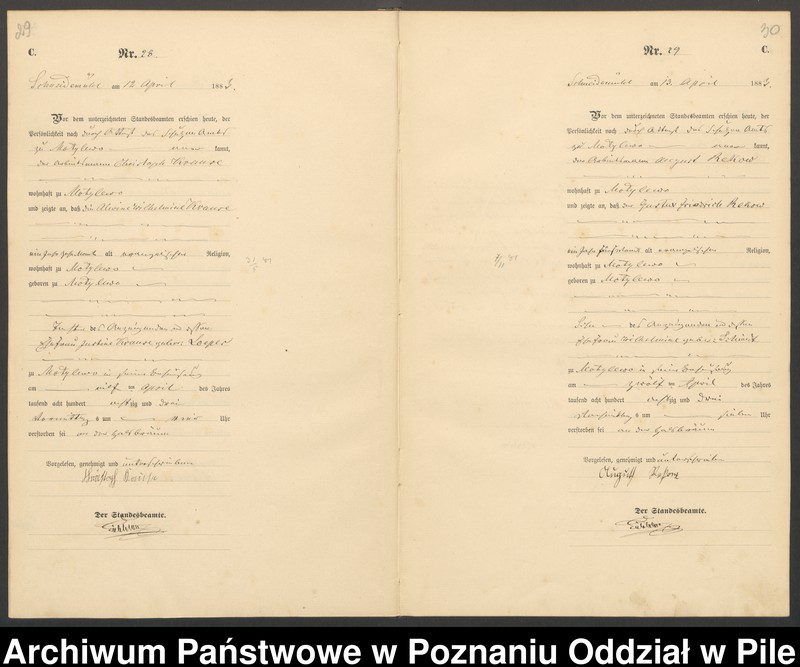 29
C.
Nr. 28
Schneidemühl am 12 April 1883.
Vor dem unterzeichneten Standesbeamten erschien heute, der
Persönlichkeit nach durch Attest des Schulzen Amts
zu Motylewo kannt,
der Arbeitsmann Christoph Krause
wohnhaft zu Motylewo
und zeigte an, daß die Alwine Wilhelmine Krause
alt evangelischer Religion,
wohnhaft zu Motylewo
geboren zu Motylewo
Tochter des Anzeigenden und dessen
Ehefrau Justine Krause gebor:
zu Motylewo in seiner Behausung
am elf ten April des Jahres
tausend acht hundert achtzig und drei
Vormittags um Uhr
verstorben sei an der Halsbräune
Vorgelesen, genehmigt und unterschrieben
Christoph Krause
Der Standesbeamte.
30
Nr. 29
C.
Schneidemühl am 13. April 1883.
Vor dem unterzeichneten Standesbeamten erschien heute, der
Persönlichkeit nach durch Attest des Schulzen Amts
zu Motylewo kannt,
der Arbeitsmann August Rekow
wohnhaft zu Motylewo
und zeigte an, daß der Gustav Friedrich Rekow
alt evangelischer Religion,
wohnhaft zu Motylewo
geboren zu Motylewo
Sohn des Anzeigenden und dessen
Ehefrau Wilhelmine gebor: Schmidt
zu Motylewo in seiner Behausung
am zwölf ten April des Jahres
tausend acht hundert achtzig und drei
Vormittags um sieben Uhr
verstorben sei an der Halsbräune
Vorgelesen, genehmigt und unterschrieben
August
Der Standesbeamte.
Archiwum Państwowe w Poznaniu Oddział w Pile